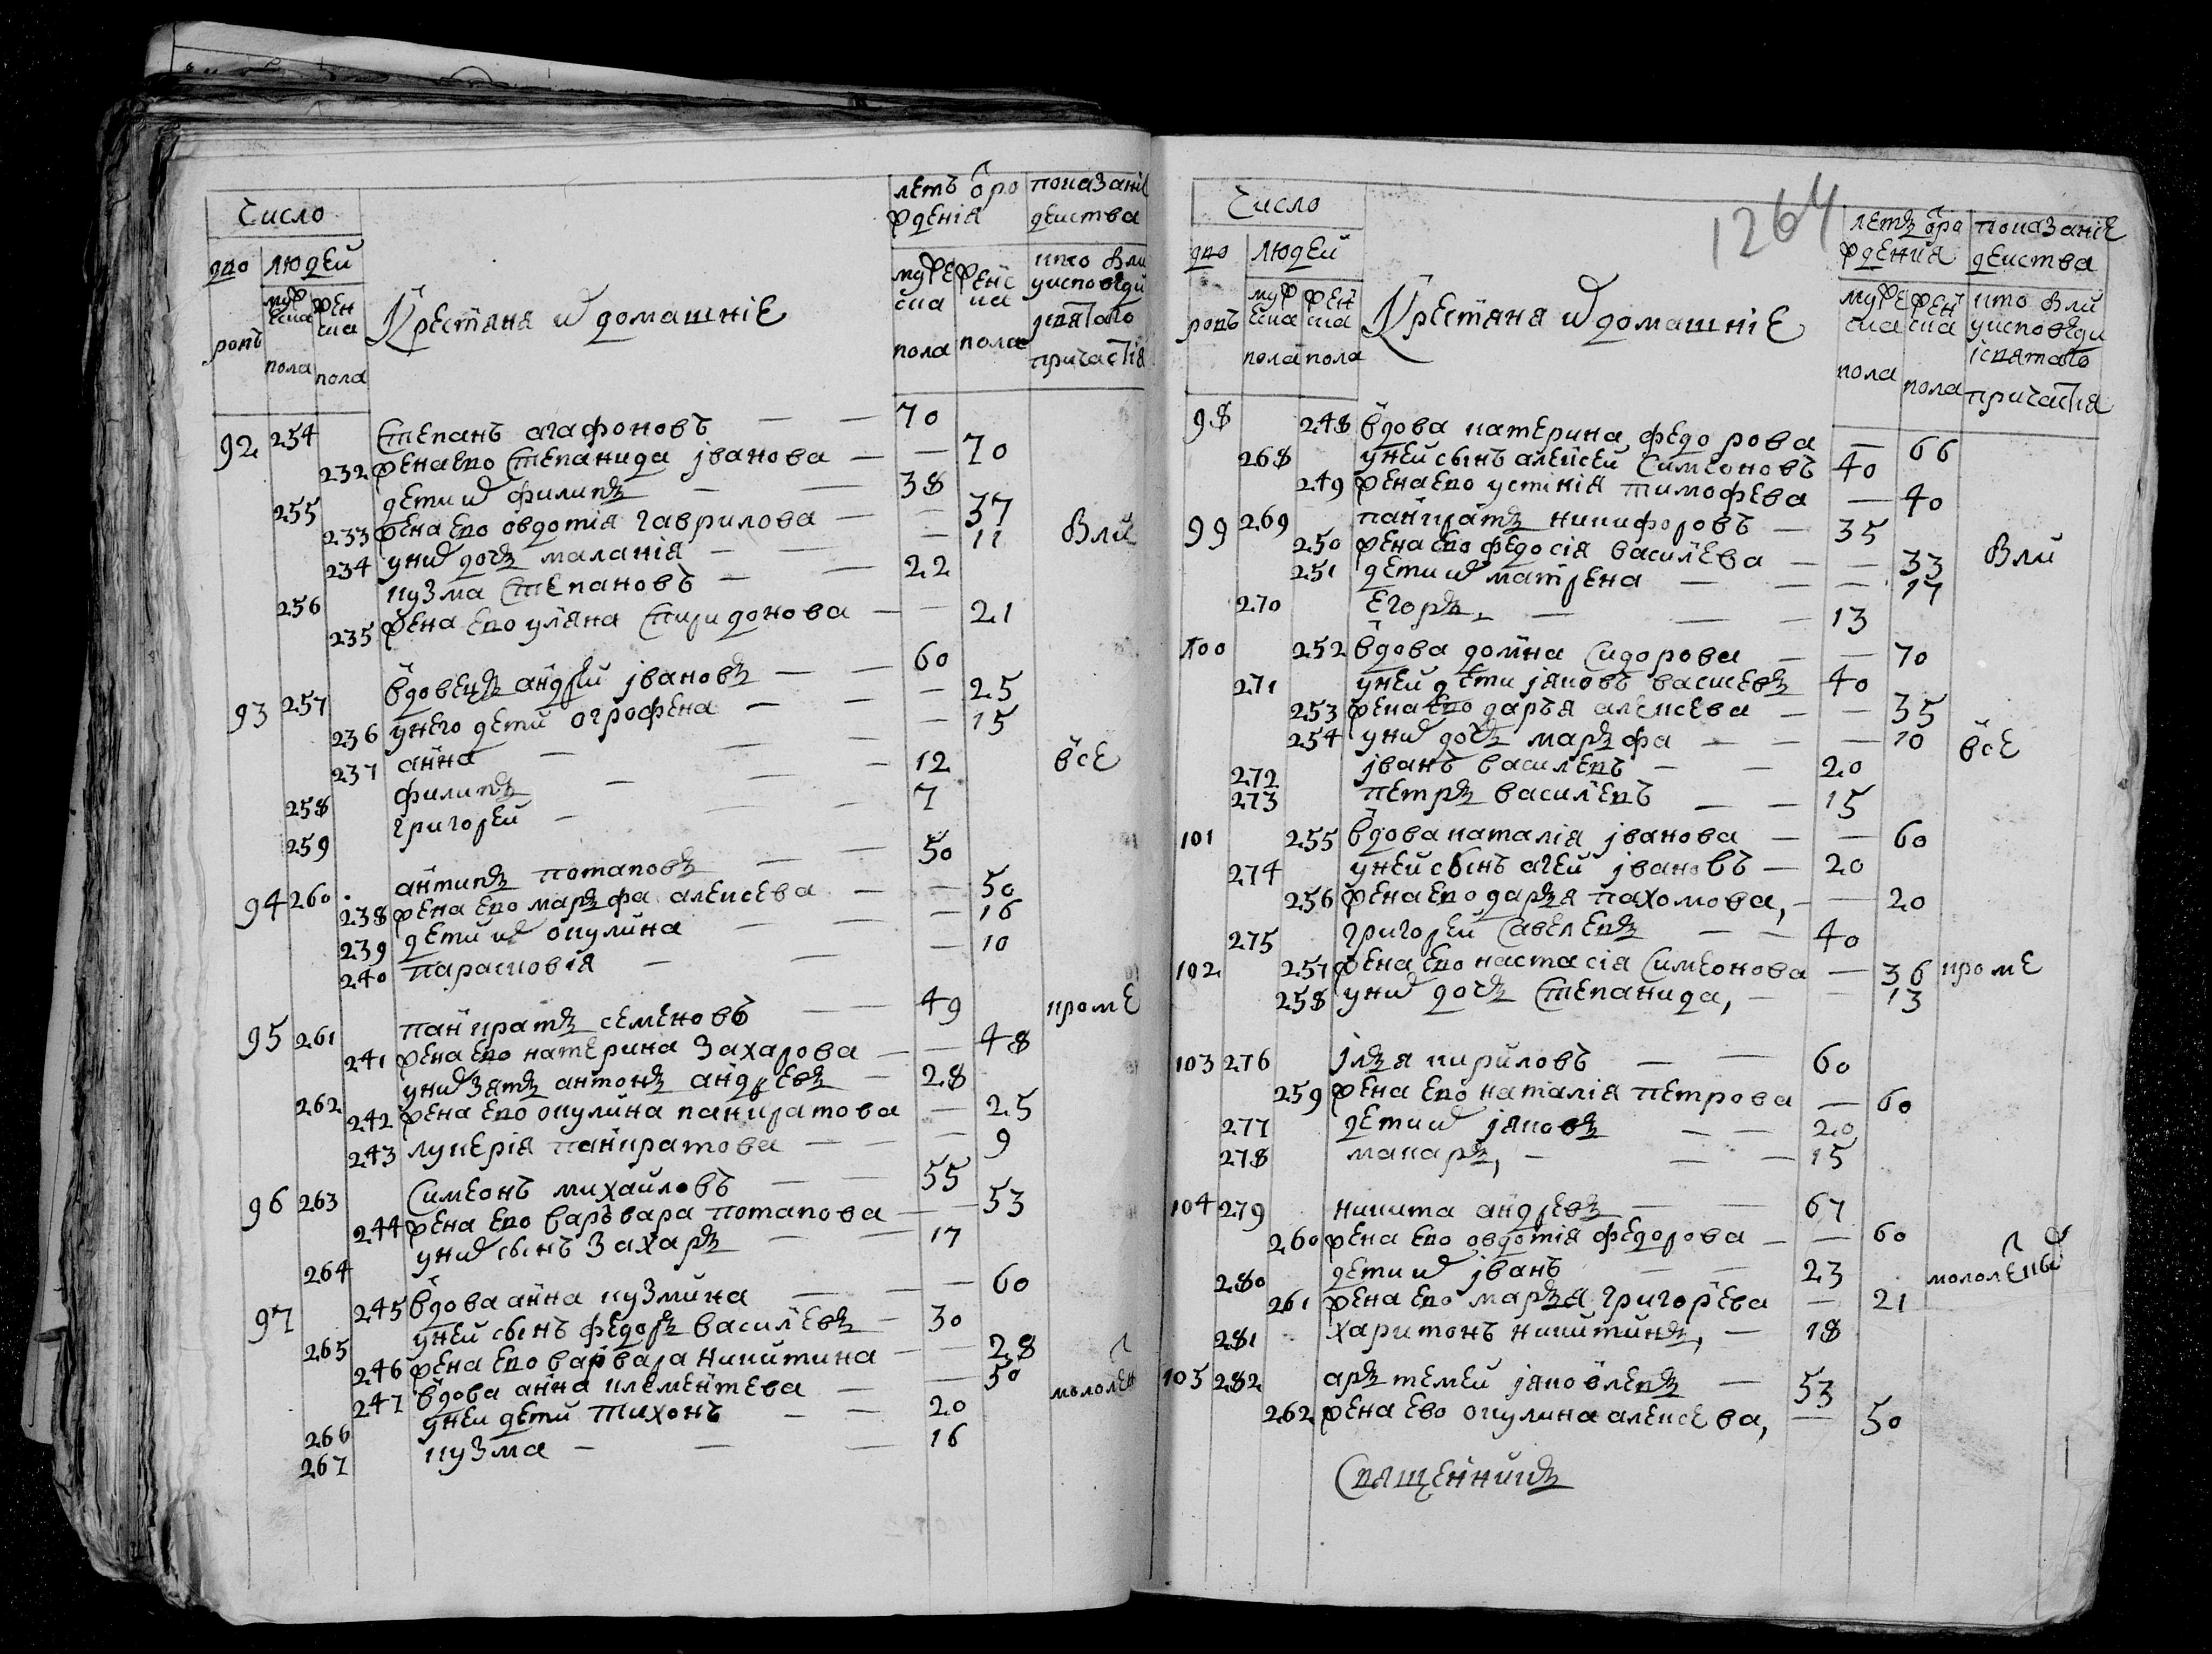 Число
летъ ѿ ро
жденія
показаніе
деиства
дво
ровъ
людей
муж
еска
пола
жен
ска
пола
Крестяня и домашніе
муже
ска
пола
женс
ка
пола
кто были
у исповѣди
і святаго
причастія
92 254 Степанъ агафоновъ — — 70
232 жена ево Степанида іванова — — 70
255 дети их филипъ — — 38
233 жена ево овдотія гаврилова — — 37
234 у них дочь маланія — — 11 были
256 кузма Степановъ — — 22
235 жена ево уляна Спиридонова — — 21
93 257 вдовецъ андрей івановъ — — 60
236 у него дети огрофена — — 25
237 анна — — 15
258 филипъ — — 12 все
259 григорей — — 7
94 260 антипъ потаповъ — — 50
238 жена ево марфа алексеева — — 50
239 дети их окулина — — 16
240 парасковія — — 10
95 261 панкратъ семеновъ — — 49 кроме
241 жена ево катерина Захарова — — 48
262 у них зять антонъ андреевъ — 28
242 жена ево окулина панкратова — 25
243 лукерія панкратова — — 9
96 263 Симеонъ михайловъ — — 55
244 жена ево варъвара потапова — — 53
264 у них сынъ Захаръ — — 17
97 245 вдова анна кузмина — — 60
265 у ней сынъ федоръ василевъ — 30
246 жена ево варвара никитина — — 28
247 вдова анна клементева — — 50 мололет
266 у ней дети тихонъ — — 20
267 кузма — — 16
1264
Число
летъ ѿ ро
жденія
показаніе
деиства
дво
ровъ
людей
муж
еска
пола
жен
ска
пола
Крестяня и домашніе
муже
ска
пола
жен
ска
пола
кто были
у исповѣди
і святаго
причастія
98 248 вдова катерина федорова — 66
268 у ней сынъ алексей Симеоновъ 40
249 жена ево устінія тимофева — 40
99 269 панкратъ никифоровъ — 35
250 жена ево федосія василева — — 33 были
251 дети их матрена — — 17
270 егоръ, — — 13
100 252 вдова домна Сидорова — — 70
271 у ней дети іяковъ василевъ 40
253 жена ево даръя алексеева — — 35
254 у них дочь маръфа — — 10 все
272 іванъ василевъ — — 20
273 петръ василевъ — — 15
101 255 вдова наталія іванова — — 60
274 у ней сынъ агей івановъ — 20
256 жена ево даръя пахомова, — — 20
275 григорей Савелевъ — — 40
102 257 жена ево настасія Симеонова — 36 кроме
258 у них дочь Степанида, — — 13
103 276 ілья кириловъ — — 60
259 жена ево наталія петрова — 60
277 дети их іяковъ — — 20
278 макаръ, — — 15
104 279 никита андреевъ — — 67
260 жена ево овдотія федорова — — 60
280 дети их іванъ — — 23 мололетных
261 жена ево маръя григорева — 21
281 харитонъ никитинъ, — 18
105 282 аръ темей іяковлевъ — 53
262 жена ево окулина алексеева, — 50
Священникъ